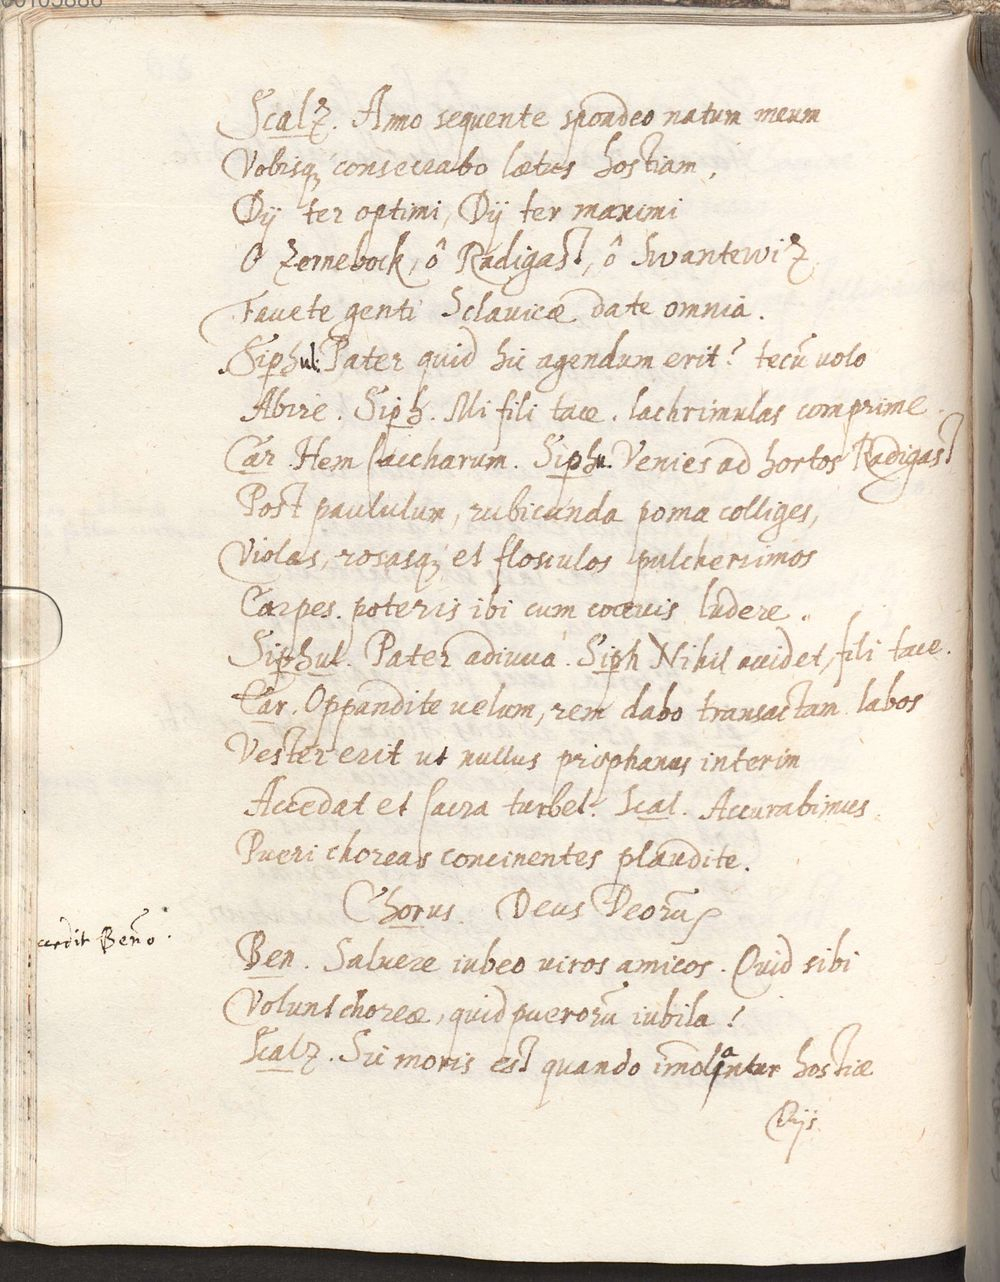 00105886
Scalz. Anno sequente spondeo natum meum
Vobisq₃ consecrabo lætus hostiam,
Dij ter optimi, Dij ter maximi
O Zernebock, ô Radigast, ô Swantewiz
Fauete genti Sclauicæ date omnia.
Siphul. Pater quid hic agendum erit? tecū uolo
Abire. Siph. Mi fili tace. lachrimulas comprime.
Car. Hem saccharum. Siphu. Venies ad hortos Radigast
Post paululum, rubicunda poma colliges,
Violas, rosasq₃ et flosculos pulcherrimos
Carpes. poteris ibi cum coæuis ludere.
Siphul. Pater adiuua. Siph Nihil accidet, fili tace.
Car. Oppandite uelum, rem dabo transactam labos
Vester erit ut nullus prophanus interim
Accedat et sacra turbet. Scal. Accurabimus
Pueri choreas concinentes plaudite.
Chorus. Deus Deorū
accedit Beño.
Ben. Saluere iubeo uiros amicos. Quid sibi
Volunt choreæ, quid puerorū iubila?
Scalz. Sic moris est quando im̄olantur hostiæ
Dijs